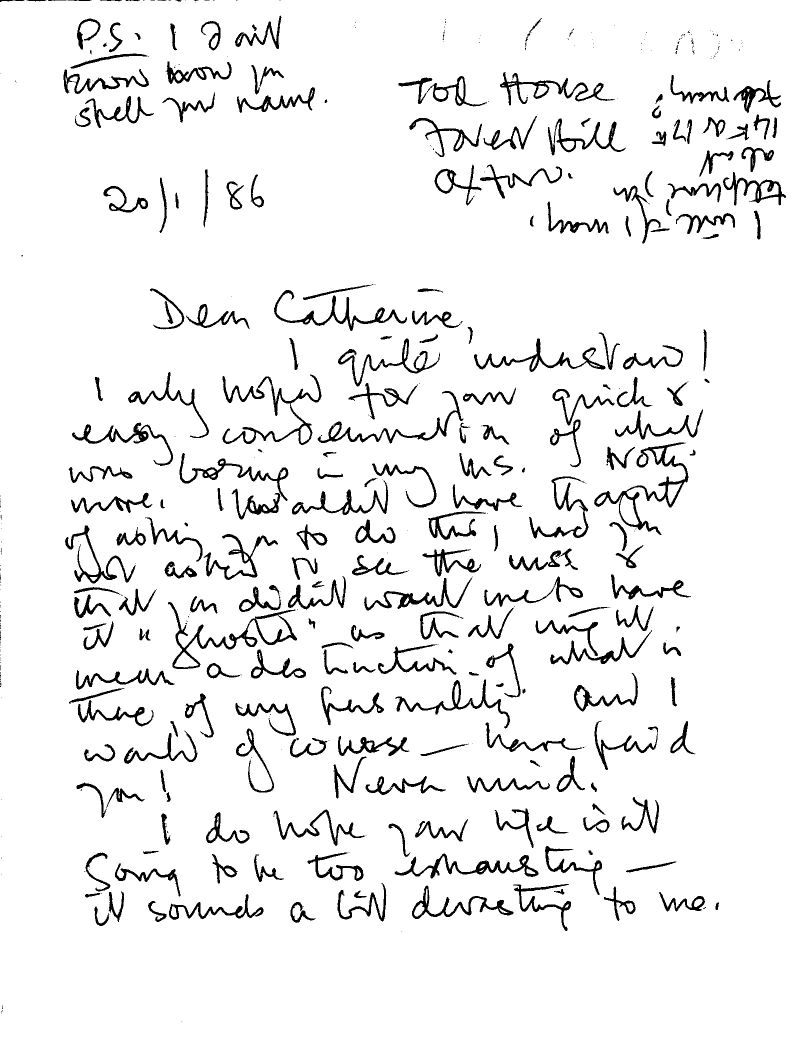 P.S. I don't
know how you
spell your name.
Tod House
Forest Hill
Oxford.
I will, if I may,
telephone you
about
14th or 17th
February?
20/1/86
Dear Catherine,
I quite understand!
I only hoped for your quick &
easy condemnation of what
was boring in my Ms. Nothing
more. I wouldn't have thought
of asking you to do this, had you
not asked to see the mss &
that you didn't want me to have
it "ghosted" as that might
mean a destruction of what is
there of my personality. and I
would of course — have paid
you! Never mind.
I do hope your life isn't
going to be too exhausting —
it sounds a bit devasting to me.